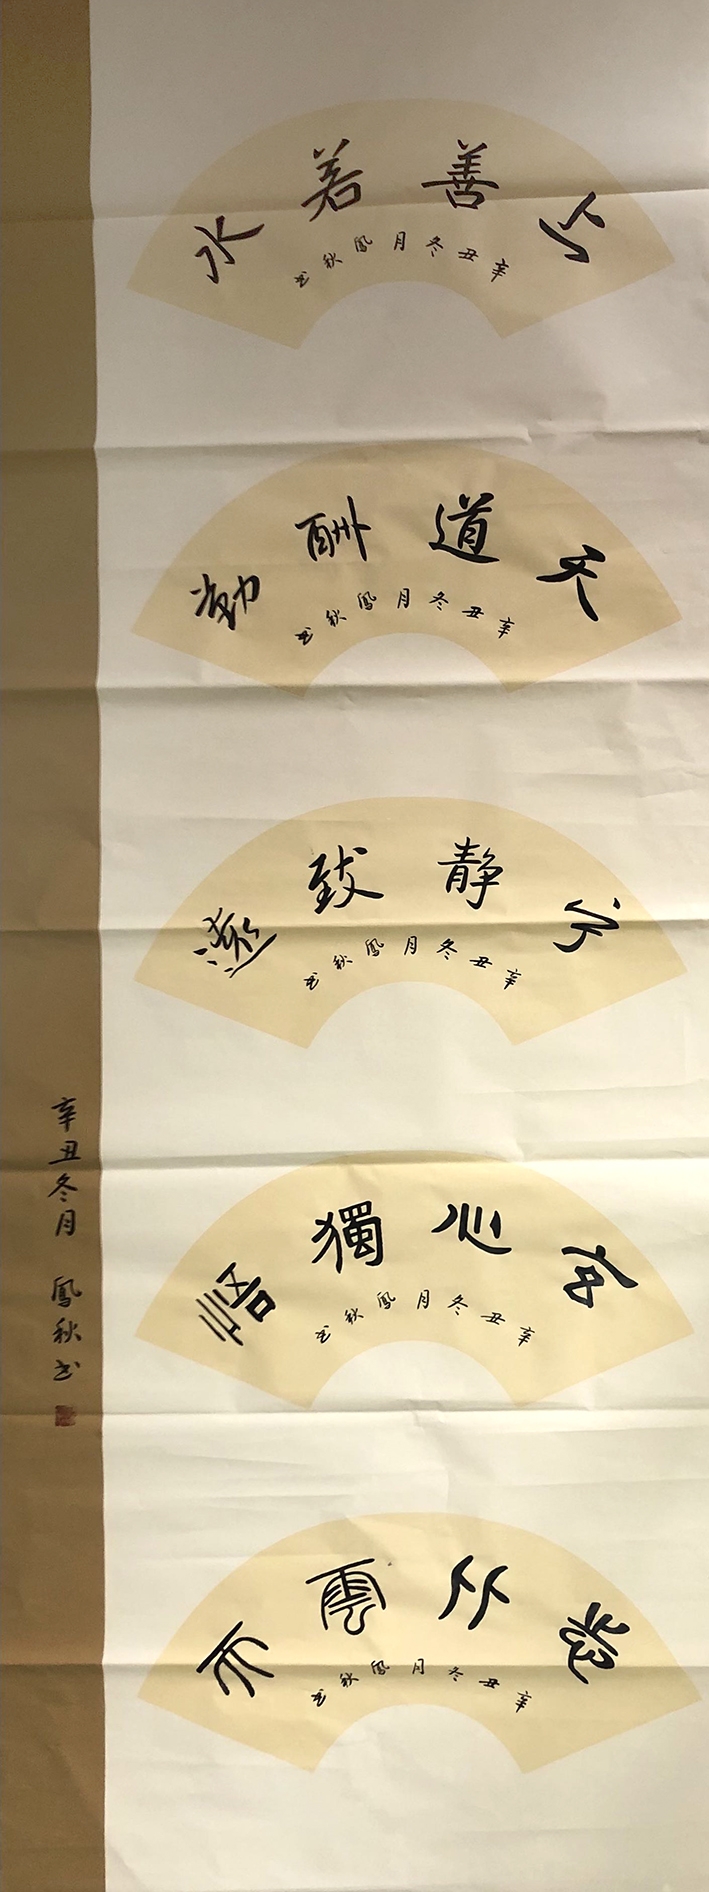 上善若水
辛丑冬月鳳秋书
天道酬勤
辛丑冬月鳳秋书
宁静致遠
辛丑冬月鳳秋书
心獨悟
辛丑冬月鳳秋书
雲天
辛丑冬月鳳秋书
辛丑冬月 鳳秋书